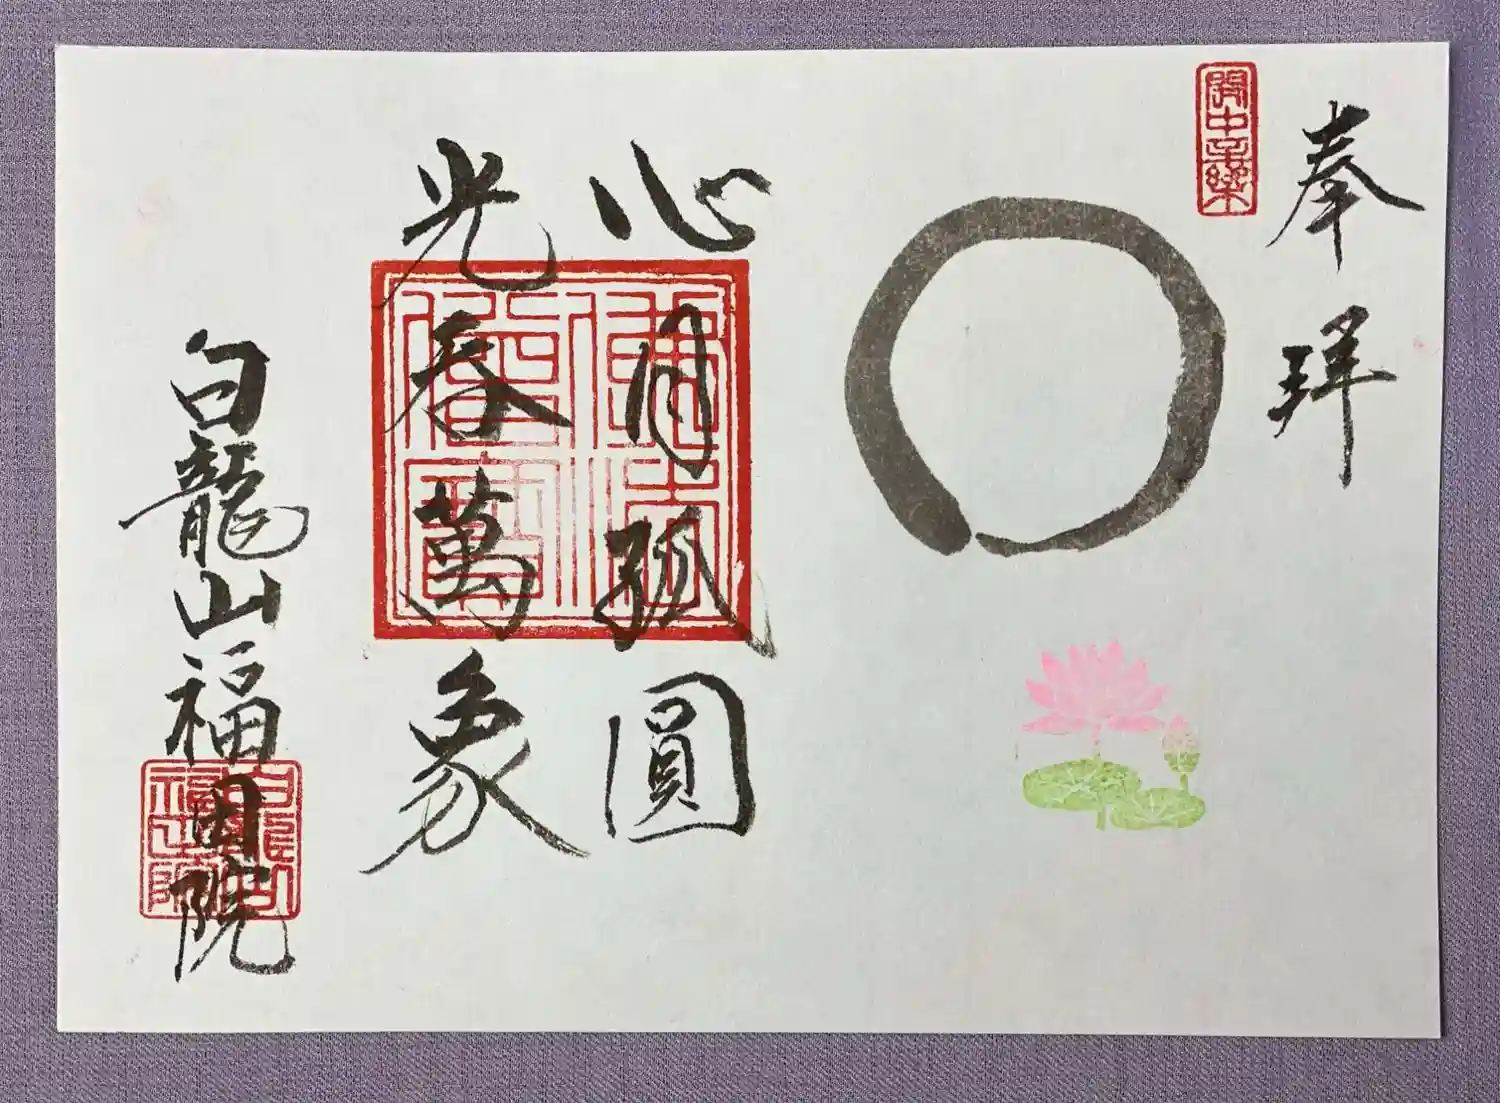 奉拝
心月孤圓
光呑萬象
佛法
僧寶
白龍山福田院
白龍山
福田院